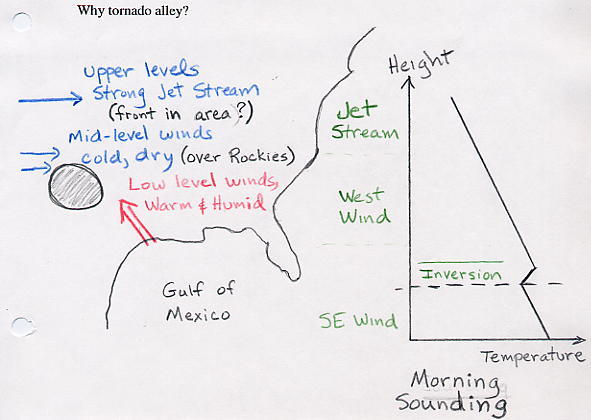 Why tornado alley?
Upper levels
Strong Jet Stream
(front in area?)
Mid-level winds
cold, dry (over Rockies)
Low level winds,
Warm & Humid
Gulf of
Mexico
Height
Jet
Stream
West
Wind
Inversion
SE Wind
Temperature
Morning
Sounding